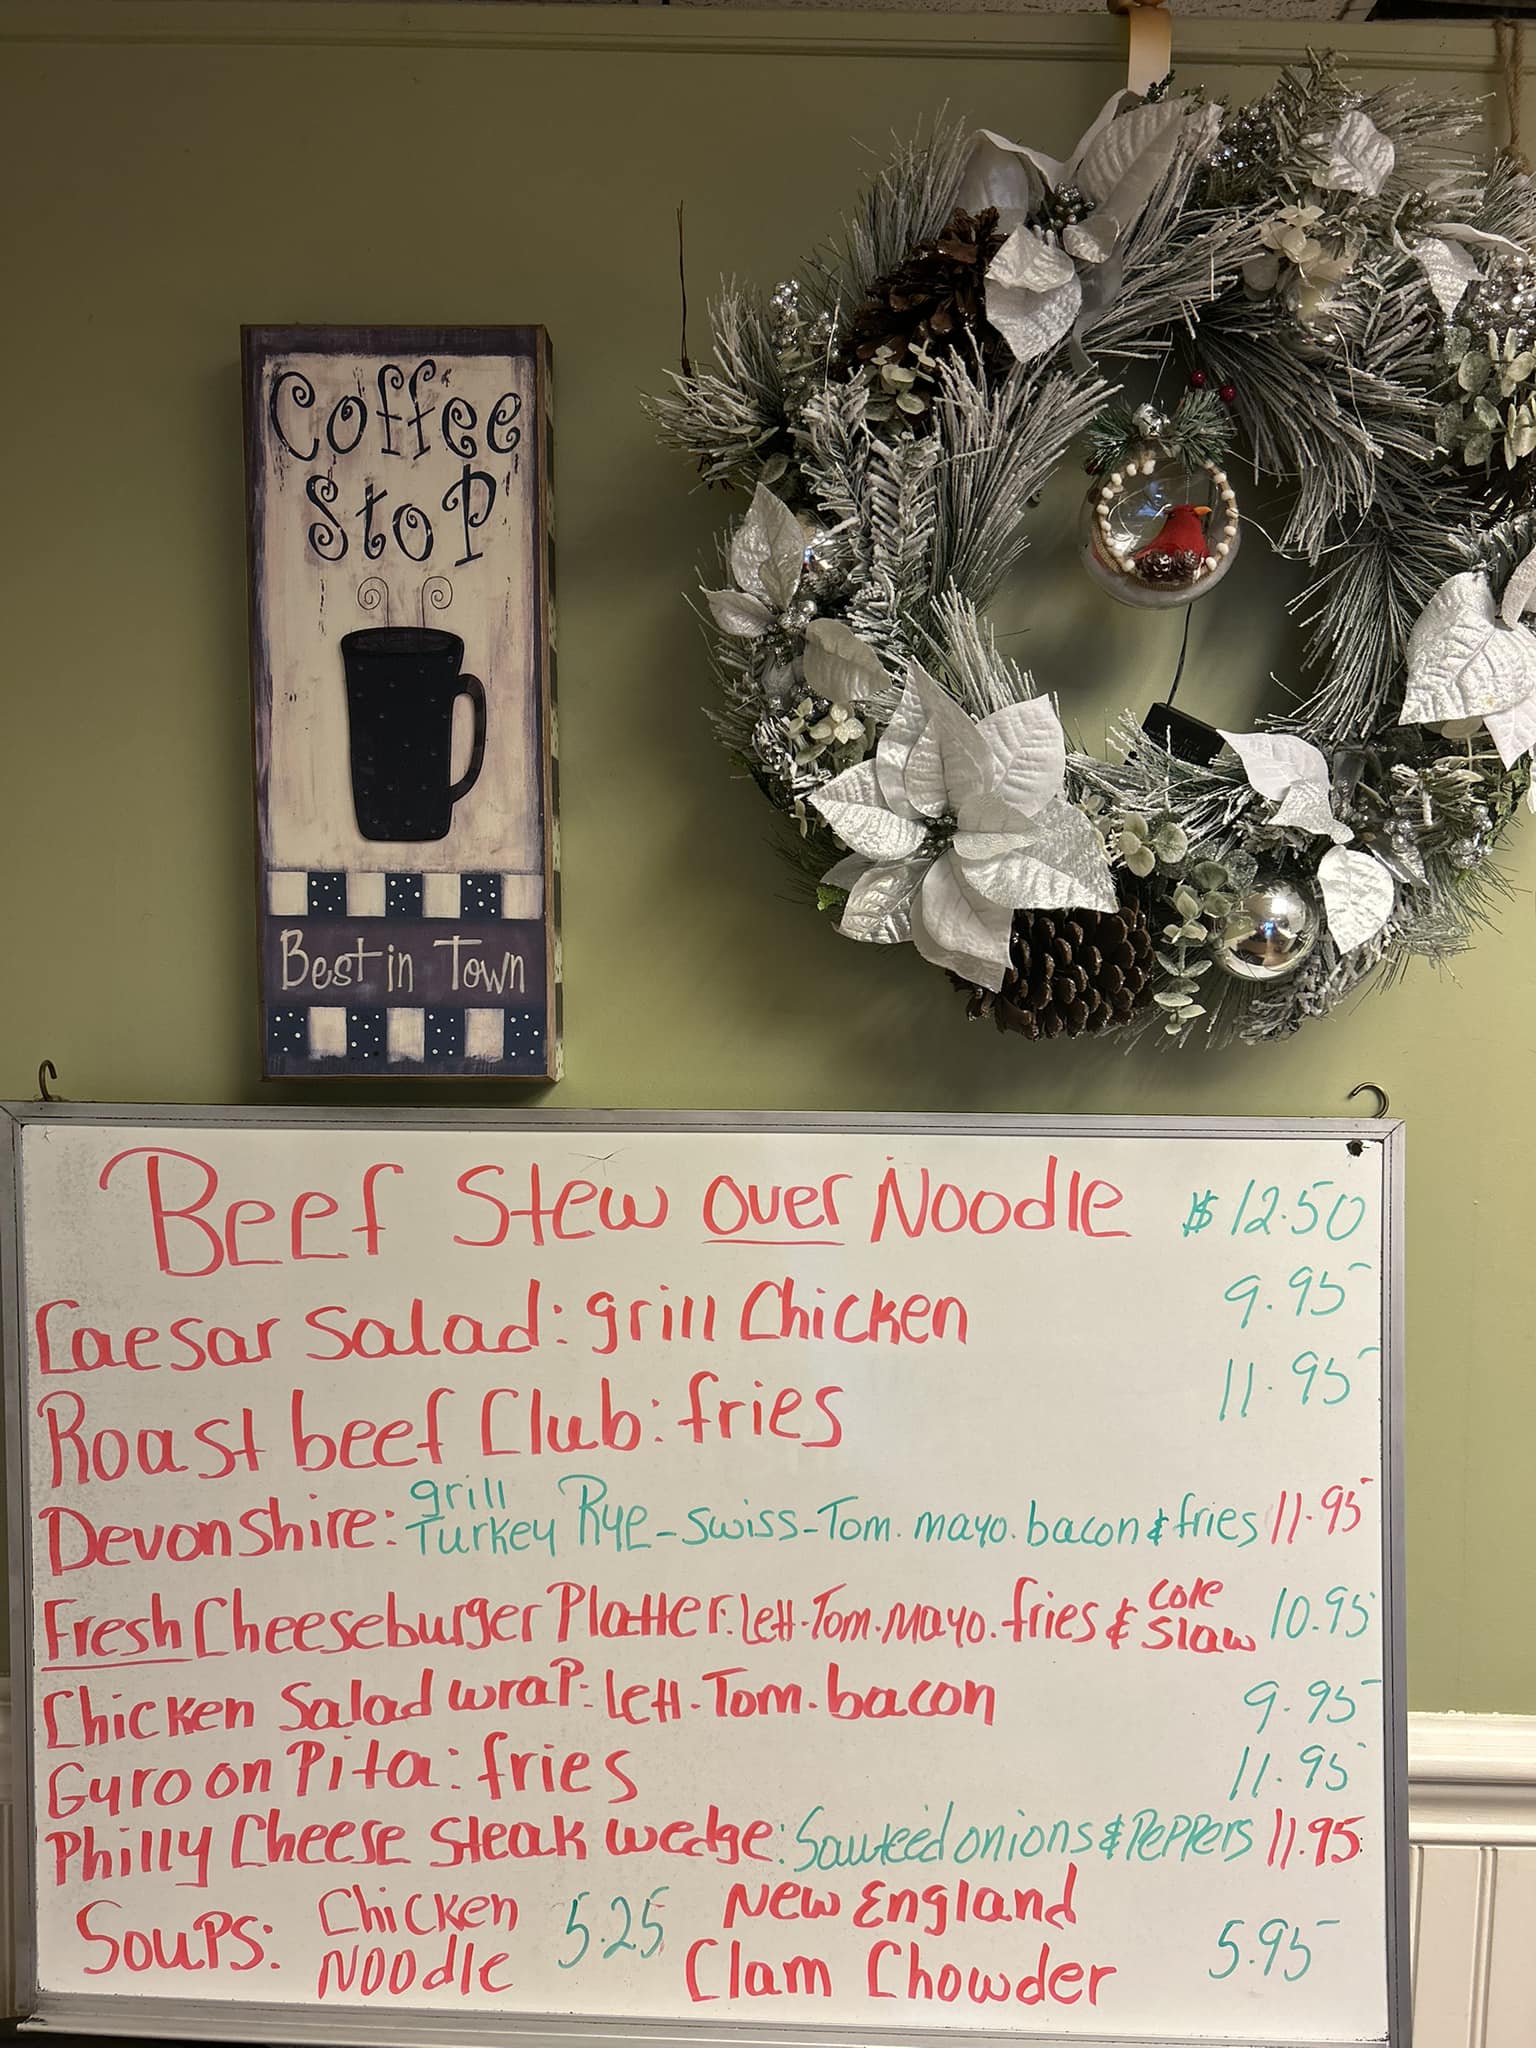 Coffee
Stop
Best in Town
Beef Stew over Noodle $12.50
Caesar Salad: grill Chicken 9.95
Roast beef Club: fries 11.95
Devonshire: grill Turkey Rye-swiss-Tom. mayo. bacon & fries 11.95
Fresh Cheeseburger Platter: Lett-Tom. Mayo. fries & Cole Slaw 10.95
Chicken Salad wrap: Lett. Tom. bacon 9.95
Gyro on Pita: fries 11.95
Philly Cheese Steak wedge: Sauteed onions & Peppers 11.95
Soups: Chicken Noodle 5.25 New England Clam Chowder 5.95